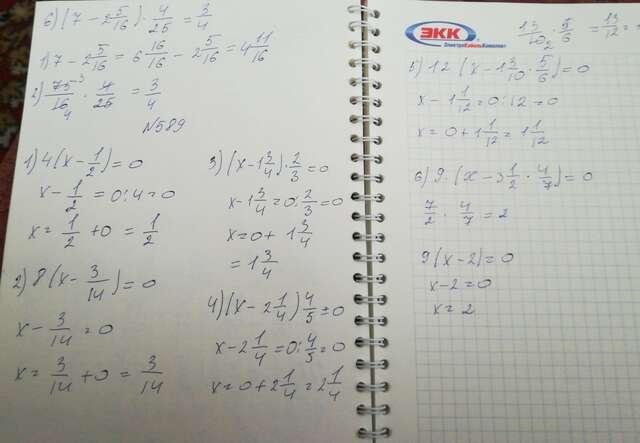 6) (7 - 2 5/16) · 4/25 = 3/4
1) 7 - 2 5/16 = 6 16/16 - 2 5/16 = 4 11/16
2) 75/16 · 4/25 = 3/4
№589
1) 4(x - 1/2) = 0
x - 1/2 = 0:4 = 0
x = 1/2 + 0 = 1/2
2) 8(x - 3/14) = 0
x - 3/14 = 0
x = 3/14 + 0 = 3/14
3) (x - 1 3/4) · 2/3 = 0
x - 1 3/4 = 0 : 2/3 = 0
x = 0 + 1 3/4
= 1 3/4
4) (x - 2 1/4) 4/5 = 0
x - 2 1/4 = 0 : 4/5 = 0
x = 0 + 2 1/4 = 2 1/4
ЭКК
ЭлектроКабельКомплект
13/10 · 5/6 = 13/12 =
5) 12 (x - 1 3/10 · 5/6) = 0
x - 1 1/12 = 0:12 = 0
x = 0 + 1 1/12 = 1 1/12
6) 9 · (x - 3 1/2 · 4/7) = 0
7/2 · 4/7 = 2
9(x - 2) = 0
x - 2 = 0
x = 2